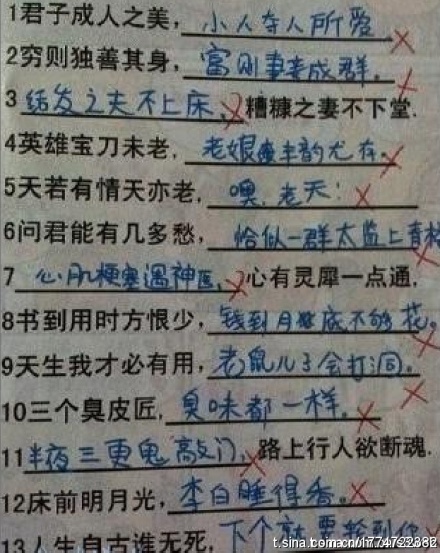 1君子成人之美,小人夺人所爱。
2穷则独善其身,富则妻妾成群。
3结发之夫不上床,糟糠之妻不下堂.
4英雄宝刀未老,老娘半韵尤存。
5天若有情天亦老,噢,老天!
6问君能有几多愁,恰似一群太监上青
7心肌梗塞遇神医,心有灵犀一点通.
8书到用时方恨少,钱到月底不够花。
9天生我才必有用,老鼠儿子会打洞。
10三个臭皮匠,臭味都一样。
11半夜三更鬼敲门,路上行人欲断魂.
12床前明月光,李白睡得香。
13人生自古谁无死,下个就要轮到你